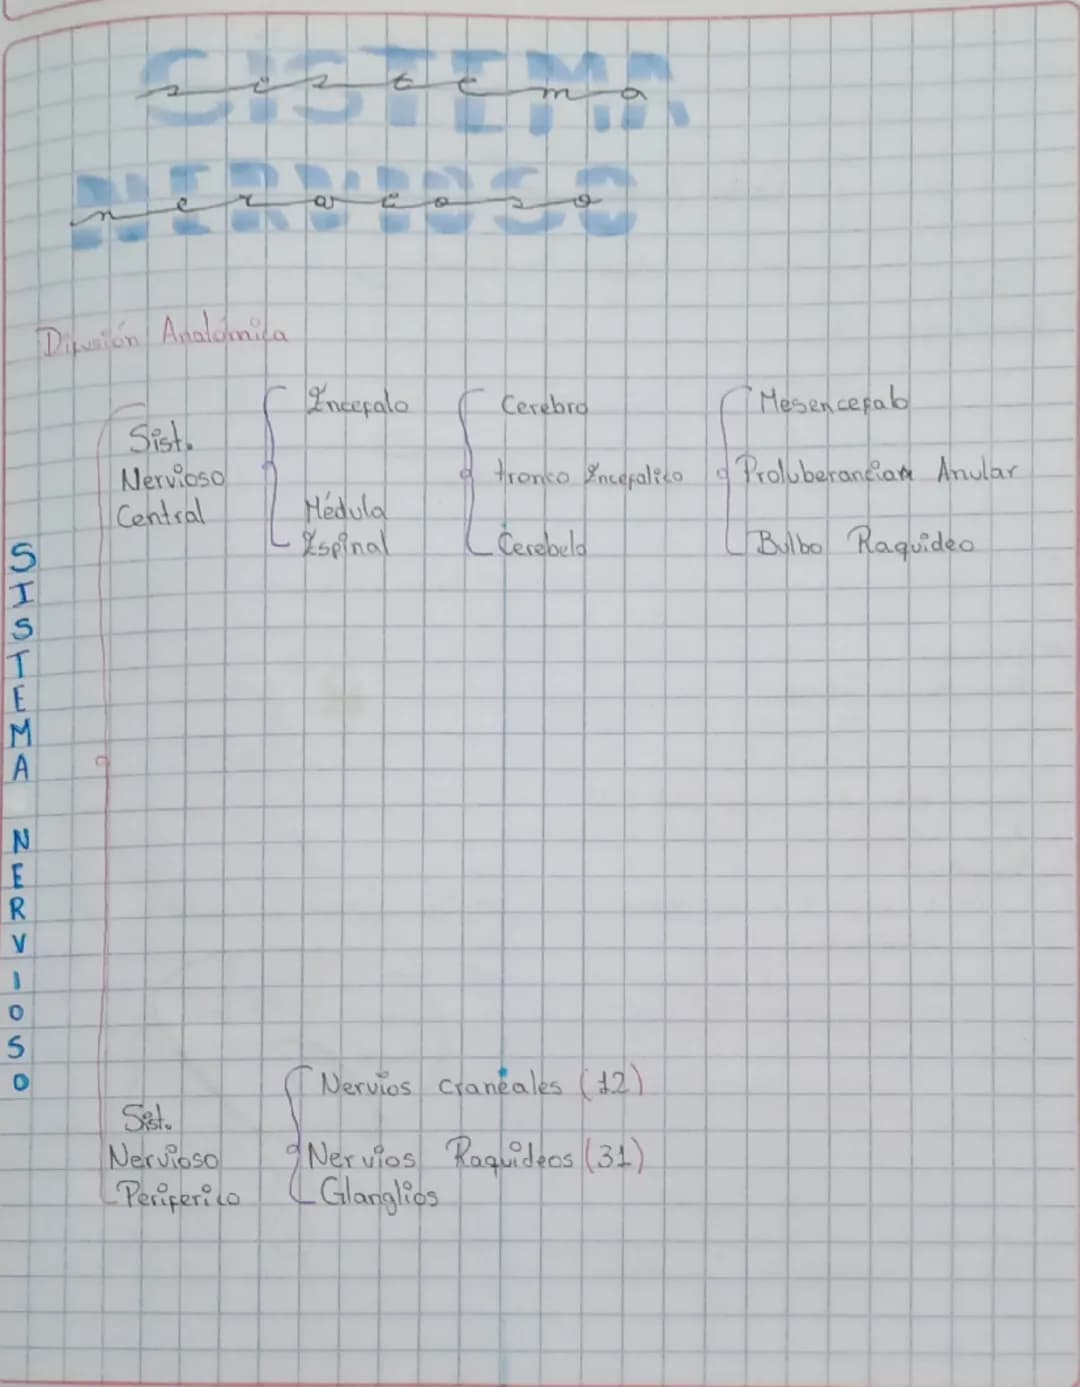 SISTEMA
sistema
NERVIOSO
nervioso
División Anatómica
Sist.
Nervioso
Central
Encefalo
Médula
Espinal
Cerebro
tronco Encefalico
Cerebelo
Mesencefalo
Protuberancian Anular
Bulbo Raquideo
SISTEMA NERVIOSO
Sist.
Nervioso
Periferico
Nervios craneales (12)
Nervios Raquideos (31)
Glanglios